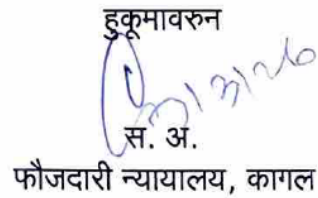 हुकूमावरुन
स. अ.
फौजदारी न्यायालय, कागल